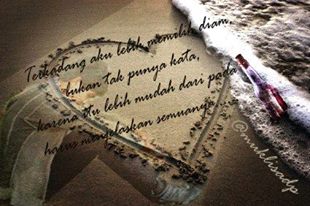 Terkadang aku lebih memilih diam,
bukan tak punya kata,
karena itu lebih mudah dari pada
harus menjelaskan semuanya
@mukhsadp